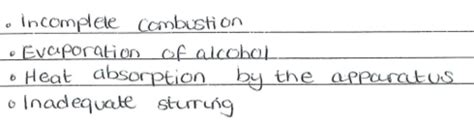 • Incomplete combustion
• Evaporation of alcohol
• Heat absorption by the apparatus
• Inadequate sturring